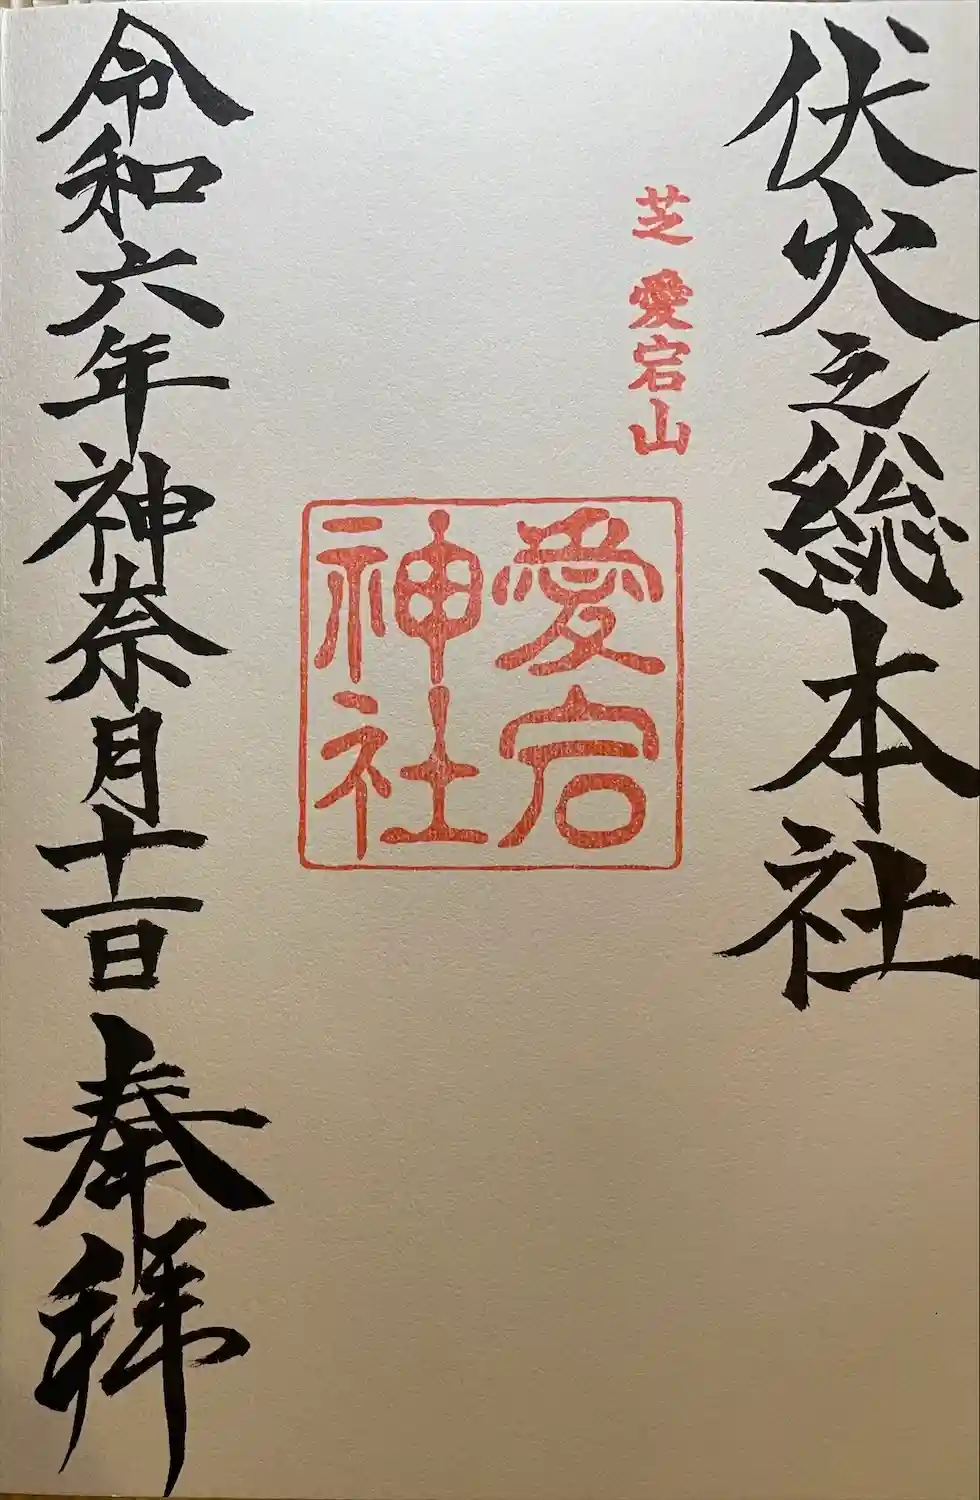 伏火之総本社
芝 愛宕山
愛宕
神社
令和六年神奈月十一日 奉拝